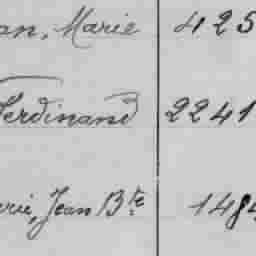 an, Marie 425
Ferdinand 2241
rie, Jean Bte 1484